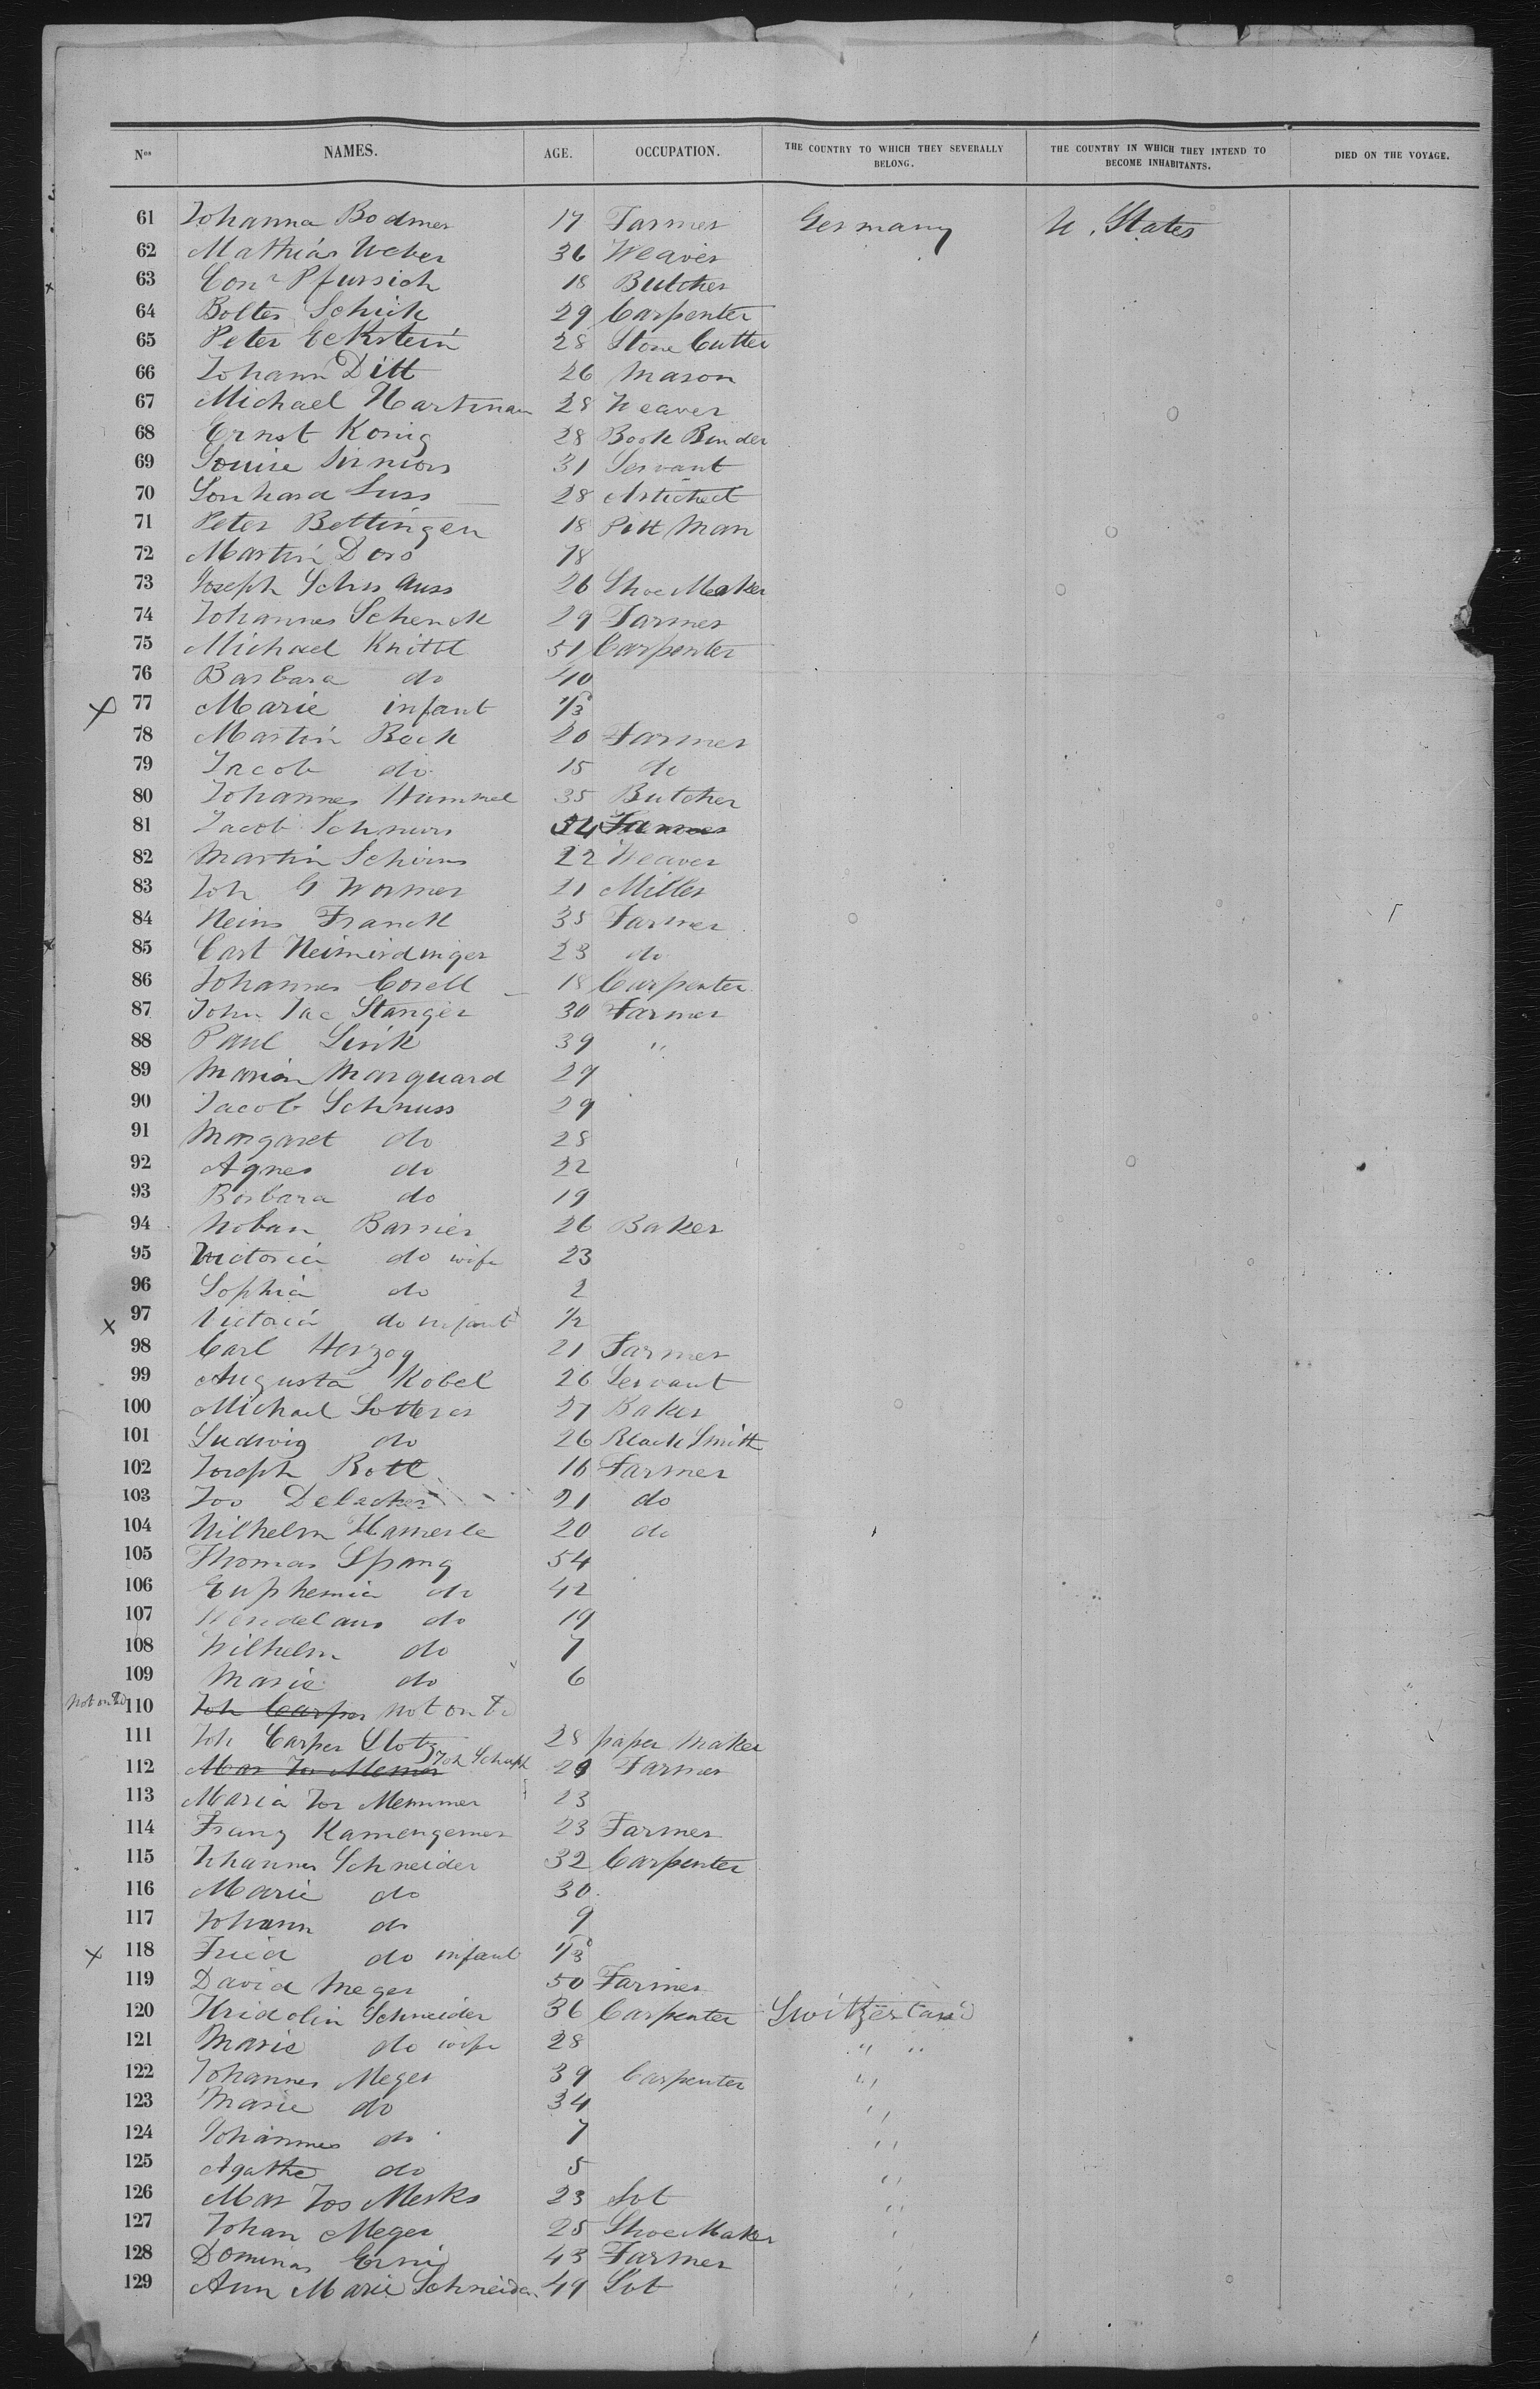 Nos NAMES. AGE. OCCUPATION. THE COUNTRY TO WHICH THEY SEVERALLY BELONG. THE COUNTRY IN WHICH THEY INTEND TO BECOME INHABITANTS. DIED ON THE VOYAGE.
61 Johanna Bodmer 17 Farmer Germany U. States
62 Mathias Weber 36 Weaver
63 Conr Pfursich 18 Butcher
64 Bolter Schick 29 Carpenter
65 Peter Eckstein 28 Stone Cutter
66 Johann Ditt 26 Mason
67 Michael Hartman 28 Weaver
68 Ernst Konig 28 Book Binder
69 Louise 31 Servant
70 Lonhard Luss 28
71 Peter Bettingen 18 Pitt Man
72 Martin Doro 18
73 Joseph 26 Shoe Maker
74 Johannes Schenck 29 Farmer
75 Michael Knittl 51 Carpenter
76 Barbara do 40
77 Marie infant
78 Martin Bock 20 Farmer
79 Jacob do 15 do
80 Johannes Hummel 35 Butcher
81 Jacob 34 Farmer
82 Martin Schirms 22 Weaver
83 Joh G Wormer 21 Miller
84 Heins Franck 35 Farmer
85 Carl Heimerdinger 23 do
86 Johannes Corell 18 Carpenter
87 John Jac Stanger 30 Farmer
88 Paul Link 39 "
89 Marion Marquard 29
90 Jacob Schnuss 29
91 Margaret do 28
92 Agnes do 22
93 Barbara do 19
94 Barrier 26 Baker
95 Victoria do wife 23
96 Sophia do 2
97 Victoria do infant 1/2
98 Carl Herzog 21 Farmer
99 Augusta Kobel 26 Servant
100 Michael Lotterer 27 Baker
101 Ludwig do 26 Black Smith
102 Joseph Rott 16 Farmer
103 Jos 21 do
104 Wilhelm Hamerle 20 do
105 Thomas Spang 54
106 Euphemia do 42
107 Wendelaus do 19
108 Wilhelm do 7
109 Marie do 6
Not on Bd 110 Joh Casper Not on Bd
111 Joh Casper Slotz 28 paper Maker
112 Mar Jos Memer Joh Schaph 29 Farmer
113 Maria Jos Memmer 23
114 Franz Kamengemer 23 Farmer
115 Johannes Schneider 32 Carpenter
116 Marie do 30
117 Johann do 9
118 Fried do infant
119 David Meger 50 Farmer
120 Fridolin Schneider 36 Carpenter Switzerland
121 Marie do wife 28 " "
122 Johannes Meger 39 Carpenter "
123 Marie do 34 "
124 Johannes do 7 "
125 Agathe do 5 "
126 Mar Jos Merks 23 "
127 Johan Meger 25 Shoe Maker "
128 Dominas Erni 43 Farmer "
129 Ann Marie Schneider 49 "